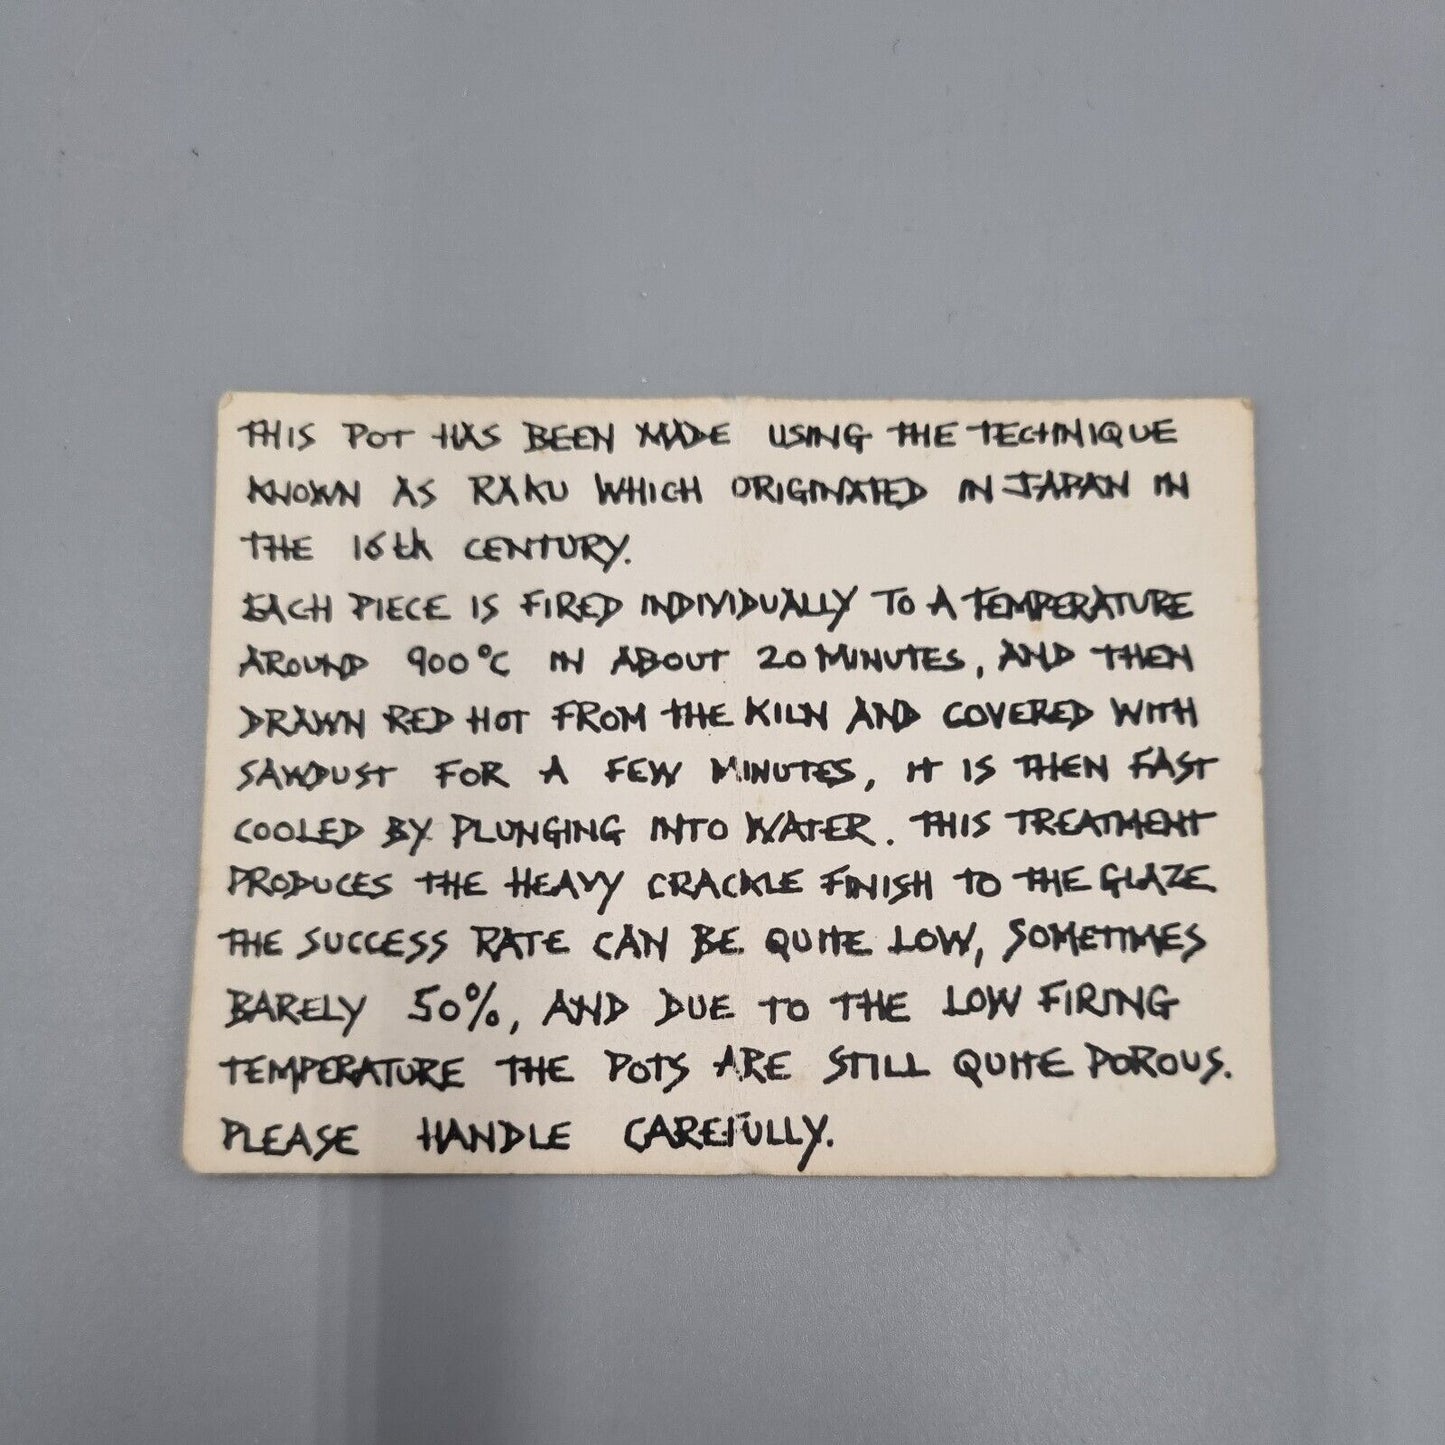 THIS POT HAS BEEN MADE USING THE TECHNIQUE
KNOWN AS RAKU WHICH ORIGINATED IN JAPAN IN
THE 16th CENTURY.
EACH PIECE IS FIRED INDIVIDUALLY TO A TEMPERATURE
AROUND 900°C IN ABOUT 20 MINUTES, AND THEN
DRAWN RED HOT FROM THE KILN AND COVERED WITH
SAWDUST FOR A FEW MINUTES, IT IS THEN FAST
COOLED BY PLUNGING INTO WATER. THIS TREATMENT
PRODUCES THE HEAVY CRACKLE FINISH TO THE GLAZE.
THE SUCCESS RATE CAN BE QUITE LOW, SOMETIMES
BARELY 50%, AND DUE TO THE LOW FIRING
TEMPERATURE THE POTS ARE STILL QUITE POROUS.
PLEASE HANDLE CAREFULLY.